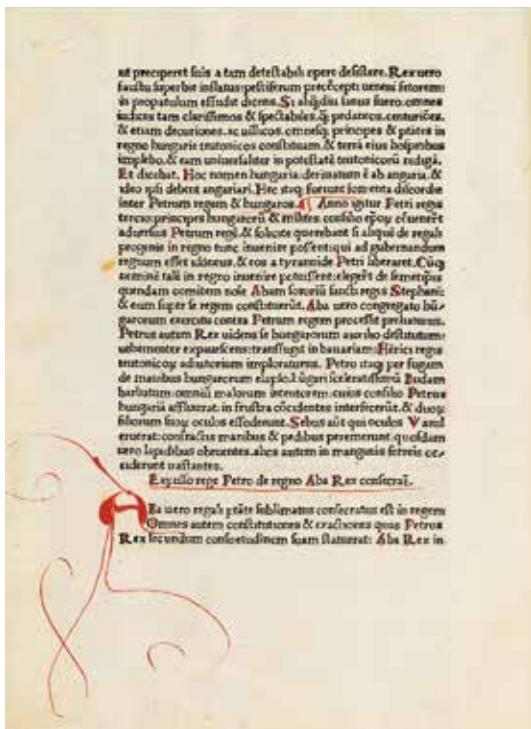 ut preciperet suis a tam detestabili opere desistere. Rex uero
faustu superbie inflatus: pestiferum precőcepti ueneni fetorem:
in propatulum effudit dicens. Si aliq̃diu sanus fuero. omnes
iudices tam clarissimos & spectabiles. q̃ pedaneos. centurióes.
& etiam decuriones. ac uillicos. omnesq; principes & ptātes in
regno hungarie teutonicos constituam. & terrā eius hospitibus
implebo. & eam uniuersaliter in potestatē teutonicorū redigā.
Et dicebat. Hoc nomen hungaria: deriuatum ē ab angaria. &
ideo ipsi debent angariari. Hec itaq; fuerunt fomenta discordie
inter Petrum regem & hungaros. Anno igitur Petri regis
tercio: principes hungarorū & milites. consilio ep̄o⁊ cōuenerūt
aduersus Petrum regē. & solicite querebant si aliquē de regali
progenie in regno tunc inuenire possent: qui ad gubernandum
regnum esset idoneus. & eos a tyrannide Petri liberaret. Cūq;
neminē talē in regno inuenire potuissent: elegerūt de semetip̄is
quendam comitem noīe Abam sororiū sancti regis Stephani:
& eum super se regem constituerūt. Aba uero congregato hū-
garorum exercitu contra Petrum regem processit preliaturus.
Petrus autem Rex uidens se hungarorum auxilio destitutum:
uehementer expauescens: transfugit in bauariam: Hērici regis
teutonico⁊ adiutorium imploraturus. Petro itaq; per fugam
de manibus hungarorum elapso. hūgari sceleratissimū Budam
barbatum. omniū malorum intentorem. cuius consilio Petrus
hungariā afflixerat. in frustra cōcidentes interfecerūt. & duo⁊
filiorum suo⁊ oculos effoderunt. Sebus aūt qui oculos Vazul
eruerat: confractis manibus & pedibus peremerunt. quosdam
uero lapidibus obruentes. alios autem in manganis ferreis oc-
ciderunt uastantes.
Expulso rege Petro de regno Aba Rex consecraī.
A Ba uero regali ptāte sublimatus consecratus est in regem
Omnes autem constitutiones & exactiones quas Petrus
Rex secundum consuetudinem suam statuerat: Aba Rex in